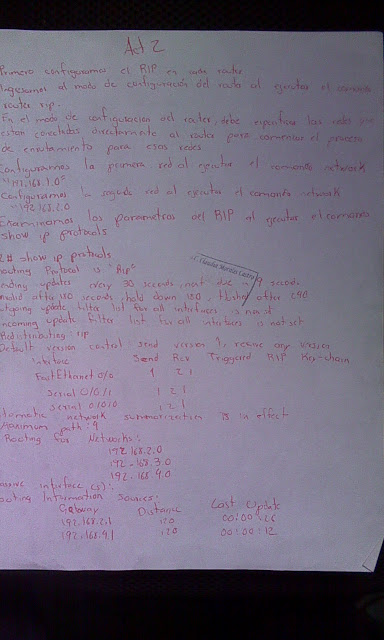 Act 2
Primero configuramos el RIP en cada router
Ingresamos al modo de configuración del router al ejecutar el comando
router rip.
En el modo de configuracion del router, debe especificar las redes que
estan conectadas directamente al router para comenzar el proceso
de enrutamiento para esas redes
Configuramos la primera red al ejecutar el comando network
"192.168.1.0"
Configuramos la segunda red al ejecutar el comando network
"192.168.2.0
Examinamos los parametros del RIP al ejecutar el comando
show ip protocols
2# show ip protocols
outing Protocol is "Rip"
ending updates every 30 seconds, next due in 9 seconds
nvalid after 180 seconds, hold down 180, flushed after 240
utgoing update filter list for all interfaces is not set
ncoming update filter list for all interfaces is not set
Redistributing: rip
Default version control: send version 1, receive any version
Interface Send Rcv Triggered RIP Key-chain
FastEthernet 0/0 1 2 1
Serial 0/0/1 1 2 1
Serial 0/0/0 1 2 1
utomatic network summarization is in effect
Maximum path: 4
Routing for Networks:
192.168.2.0
192.168.3.0
192.168.4.0
assive interface (s):
outing Information Sources:
Gateway Distance Last Update
192.168.2.1 120 00:00:26
192.168.4.1 120 00:00:12